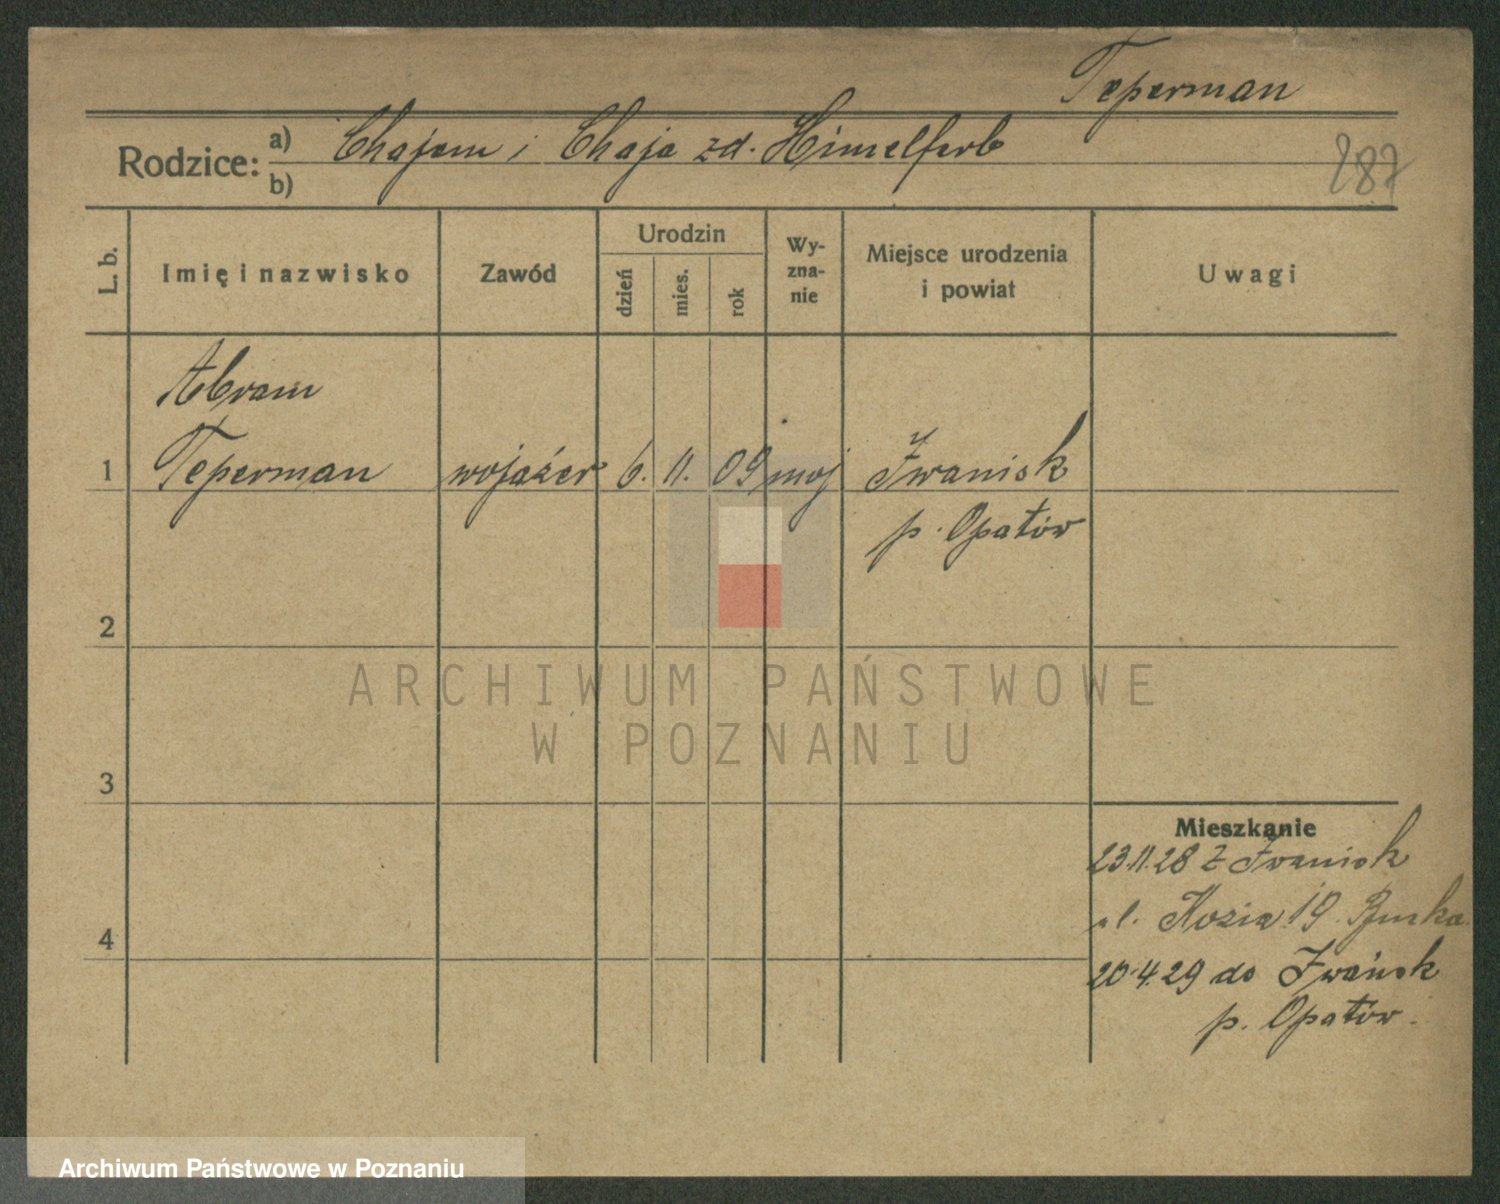 Teperman
Rodzice: a) Chajem i Chaja zd. Himelfarb
b)
287
L. b.
Imię i nazwisko
Zawód
Urodzin
dzień
mies.
rok
Wy-
zna-
nie
Miejsce urodzenia
i powiat
Uwagi
Abram
1 Teperman wojażer 6. 11. 09 moj Iwanisk
p. Opatów
2
3
4
Mieszkanie
23.11.28 z Iwanisk
ul. Kozia 19
20.4.29 do Iwanisk
p. Opatów.
ARCHIWUM PAŃSTWOWE
W POZNANIU
Archiwum Państwowe w Poznaniu